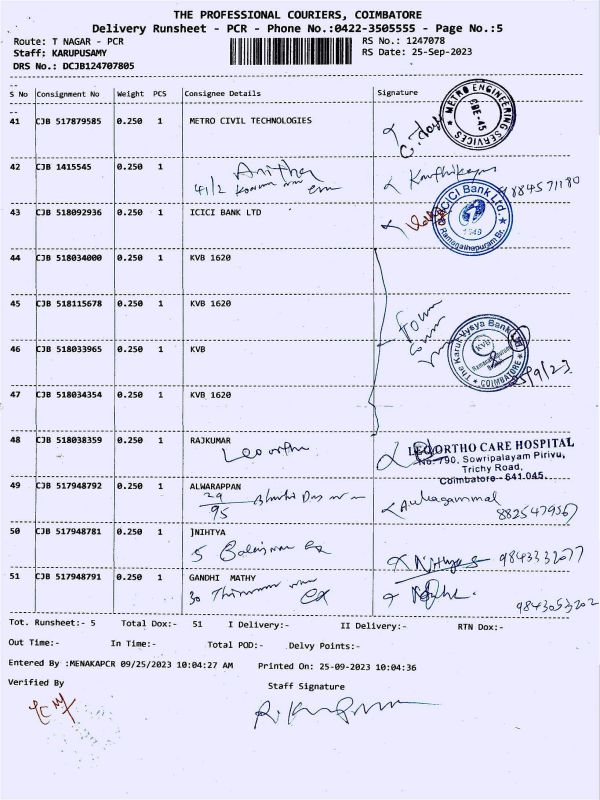 THE PROFESSIONAL COURIERS, COIMBATORE
Delivery Runsheet - PCR - Phone No.:0422-3505555 - Page No.:5
Route: T NAGAR - PCR
RS No.: 1247078
Staff: KARUPUSAMY
RS Date: 25-Sep-2023
DRS No.: DCJB124707805
S No Consignment No Weight PCS Consignee Details Signature
41 CJB 517879585 0.250 1 METRO CIVIL TECHNOLOGIES
METRO ENGINEERING SERVICES
CBE-45
42 CJB 1415545 0.250 1
Anitha
41/2
Karthikeyan
9884571180
43 CJB 518092936 0.250 1 ICICI BANK LTD
ICICI Bank Ltd.
Ramanathapuram Br.
44 CJB 518034000 0.250 1 KVB 1620
45 CJB 518115678 0.250 1 KVB 1620
46 CJB 518033965 0.250 1 KVB
The Karur Vysya Bank
KVB
COIMBATORE
47 CJB 518034354 0.250 1 KVB 1620
48 CJB 518038359 0.250 1 RAJKUMAR
Leo ortho
LEO ORTHO CARE HOSPITAL
No. 790, Sowripalayam Pirivu,
Trichy Road,
Coimbatore - 641 045.
49 CJB 517948792 0.250 1 ALWARAPPAN
29
95
8825479567
50 CJB 517948781 0.250 1 ]NIHTYA
5
9843332077
51 CJB 517948791 0.250 1 GANDHI MATHY
30
9843053202
Tot. Runsheet:- 5 Total Dox:- 51 I Delivery:- II Delivery:- RTN Dox:-
Out Time:- In Time:- Total POD:- Delvy Points:-
Entered By :MENAKAPCR 09/25/2023 10:04:27 AM Printed On: 25-09-2023 10:04:36
Verified By Staff Signature